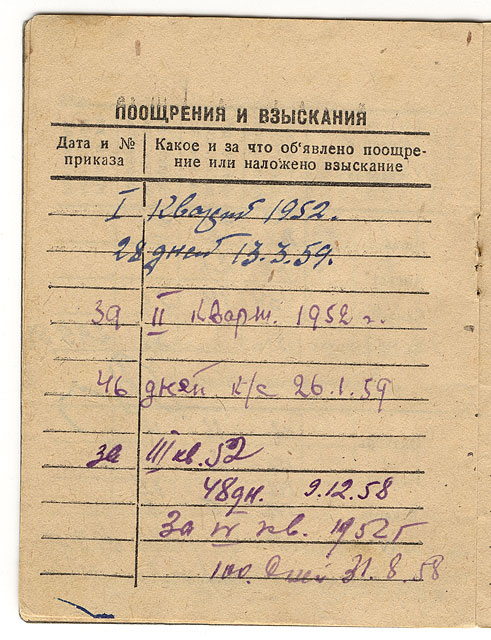 ПООЩРЕНИЯ И ВЗЫСКАНИЯ
Дата и № приказа
Какое и за что об‘явлено поощре-
ние или наложено взыскание
I Квартал 1952.
28 дней 13.3.59.
за II кварт. 1952 г.
46 дней к/с 26.1.59
за III кв. 52
48дн. 9.12.58
За IV кв. 1952 г
100. дней 31.8.58